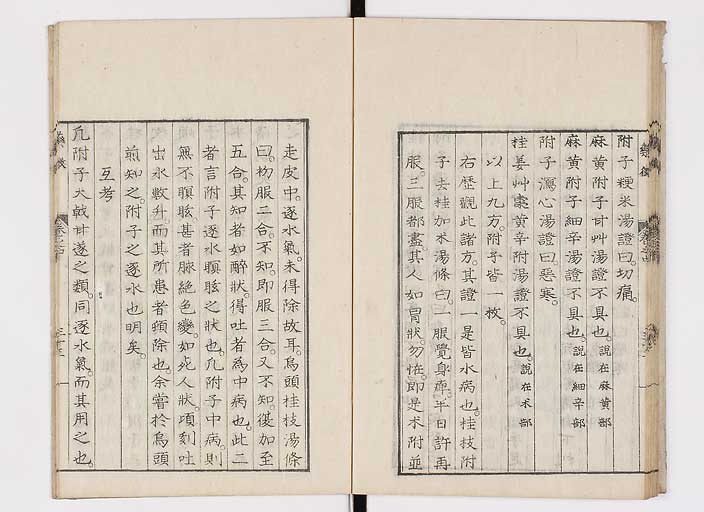 附子粳米湯證曰。切痛。
麻黃附子甘艸湯證不具也。説在麻黃部
麻黃附子細辛湯證不具也。説在細辛部
附子瀉心湯證曰。惡寒。
桂姜艸棗黃辛附湯證不具也。説在朮部
以上九方。附子皆一枚。
右歷觀此諸方。其證一是皆水病也。桂枝附
子去桂加朮湯條曰。一服覺身痺。半日許再
服。三服都盡。其人如冒狀。勿怪。即是朮附並
走皮中。逐水氣。未得除故耳。烏頭桂枝湯條
曰。初服二合。不知。即服三合。又不知。復加至
五合。其知者如醉狀。得吐者爲中病也。此二
者言附子逐水瞑眩之狀也。凡附子中病。則
無不瞑眩。甚者脉絕色變。如死人狀。頃刻吐
出水數升。而其所患者頓除也。余嘗於烏頭
煎知之。附子之逐水也明矣。
互考
凡附子大戟甘遂之類。同逐水氣。而其用之也。